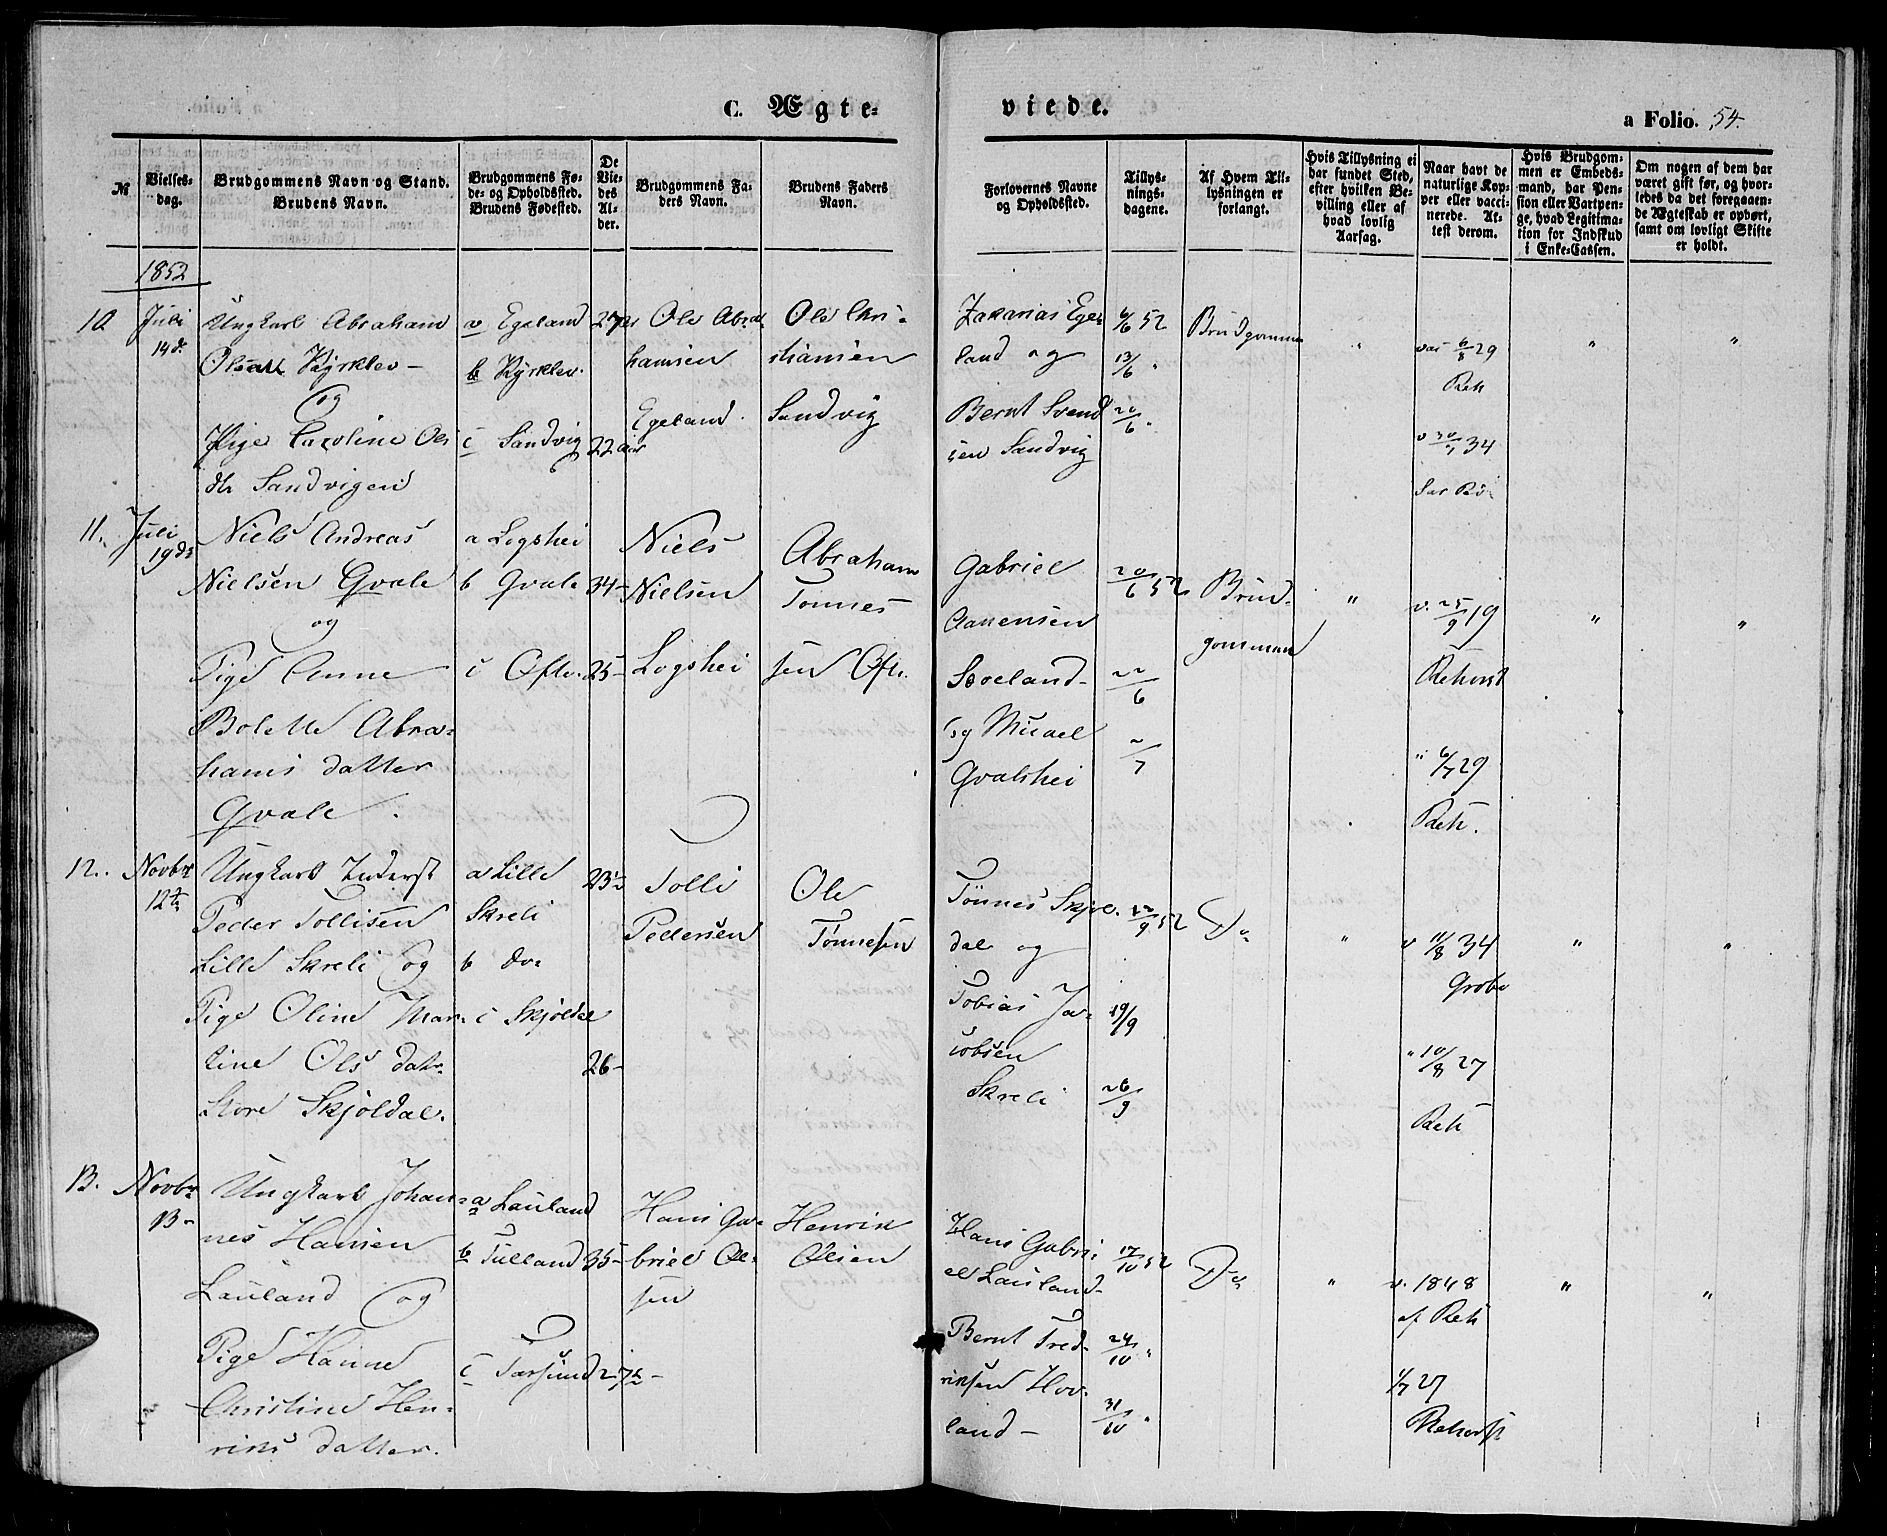 C. Ægte=
viede.
a Folio. 54.
№
Vielses-
dag.
Brudgommens Navn og Stand.
Brudens Navn.
Brudgommens Fø-
de- og Opholdssted.
Brudens Fødested.
De
Vie-
des
Al-
der.
Brudgommens Fa-
ders Navn.
Brudens Faders
Navn.
Forlovernes Navne
og Opholdssted.
Tillys-
nings-
dagene.
Af Hvem Til-
lysningen er
forlangt.
Hvis Tillysning ei
har fundet Sted,
efter hvilken Be-
villing eller af
hvad lovlig
Aarsag.
Naar havt de
naturlige Kop-
per eller vacci-
nerede. At-
test derom.
Hvis Brudgom-
men er Embeds-
mand, har Pen-
sion eller Vartpen-
ge, hvad Legitima-
tion for Indskud
i Enke-Cassen.
Om nogen af dem har
været gift før, og hvor-
ledes da det foregaaen-
de Ægteskab er ophørt,
samt om lovligt Skifte
er holdt.
1852
10 Juli
14 d.
Ungkarl Abraham
Olsen Kyrklev -
og
Pige Caroline Ols
dtr Sandvigen
a Egeland
b Kyrklev.
c Sandvig
27
22 aar
Ole Abra-
hamsen
Egeland.
Ole Chri-
stiansen
Sandvig
Zakarias Ege-
land og
Bernt Svend
sen Sandvig
6/6 52
13/6 "
20/6 "
Brudgommen
"
vac 6/8 29
Reh
v 30/7 34
"
"
11. Juli
19 d.
Niels Andreas
Nielsen Qvale
og
Pige Anne
Bolette Abra-
hams datter
Qvale.
a Logshei
b Qvale
c Ofte.
34-
25-
Niels
Nielsen
Logshei
Abraham
Tønnes
sen Ofte.
Gabriel
Aanensen
Sveland-
og Micael
Qvalshei
20/6 52
Brud-
gommen
"
v. 25/9 19
Rehorst
" 6/7 29
Reh.
"
"
12. Novbr
12te
Ungkarl Inderst
Peder Tollisen
Lille Skreli og
Pige Oline Mar-
tine Ols datr
Store Skjøldal.
a Lille
Skreli
b do
c Skjøldal
23½
26-
Tolli
Pedersen
Ole
Tønnesen
Tønnes Skjøl-
dal og
Tobias Ja-
cobsen
Skreli
12/9 52
19/9
26/9
Do
"
v 11/8 34
Grobe
" 10/8 27
Reh
"
"
13. Novbr
13-
Ungkarl Johan-
nes Hansen
Lauland og
Pige Hanne
Christine Hen-
riks datter.
a Lauland
b Tulland
c Farsund
35-
27½-
Hans Ga-
briel Ol-
sen
Henrik
Olsen
Hans Gabri-
el Lauland-
Bernt Fred-
riksen Hov-
land-
17/10 52
24/10 "
31/10 "
Do
"
v. 1848
af Reh
27
Rehorst
"
"